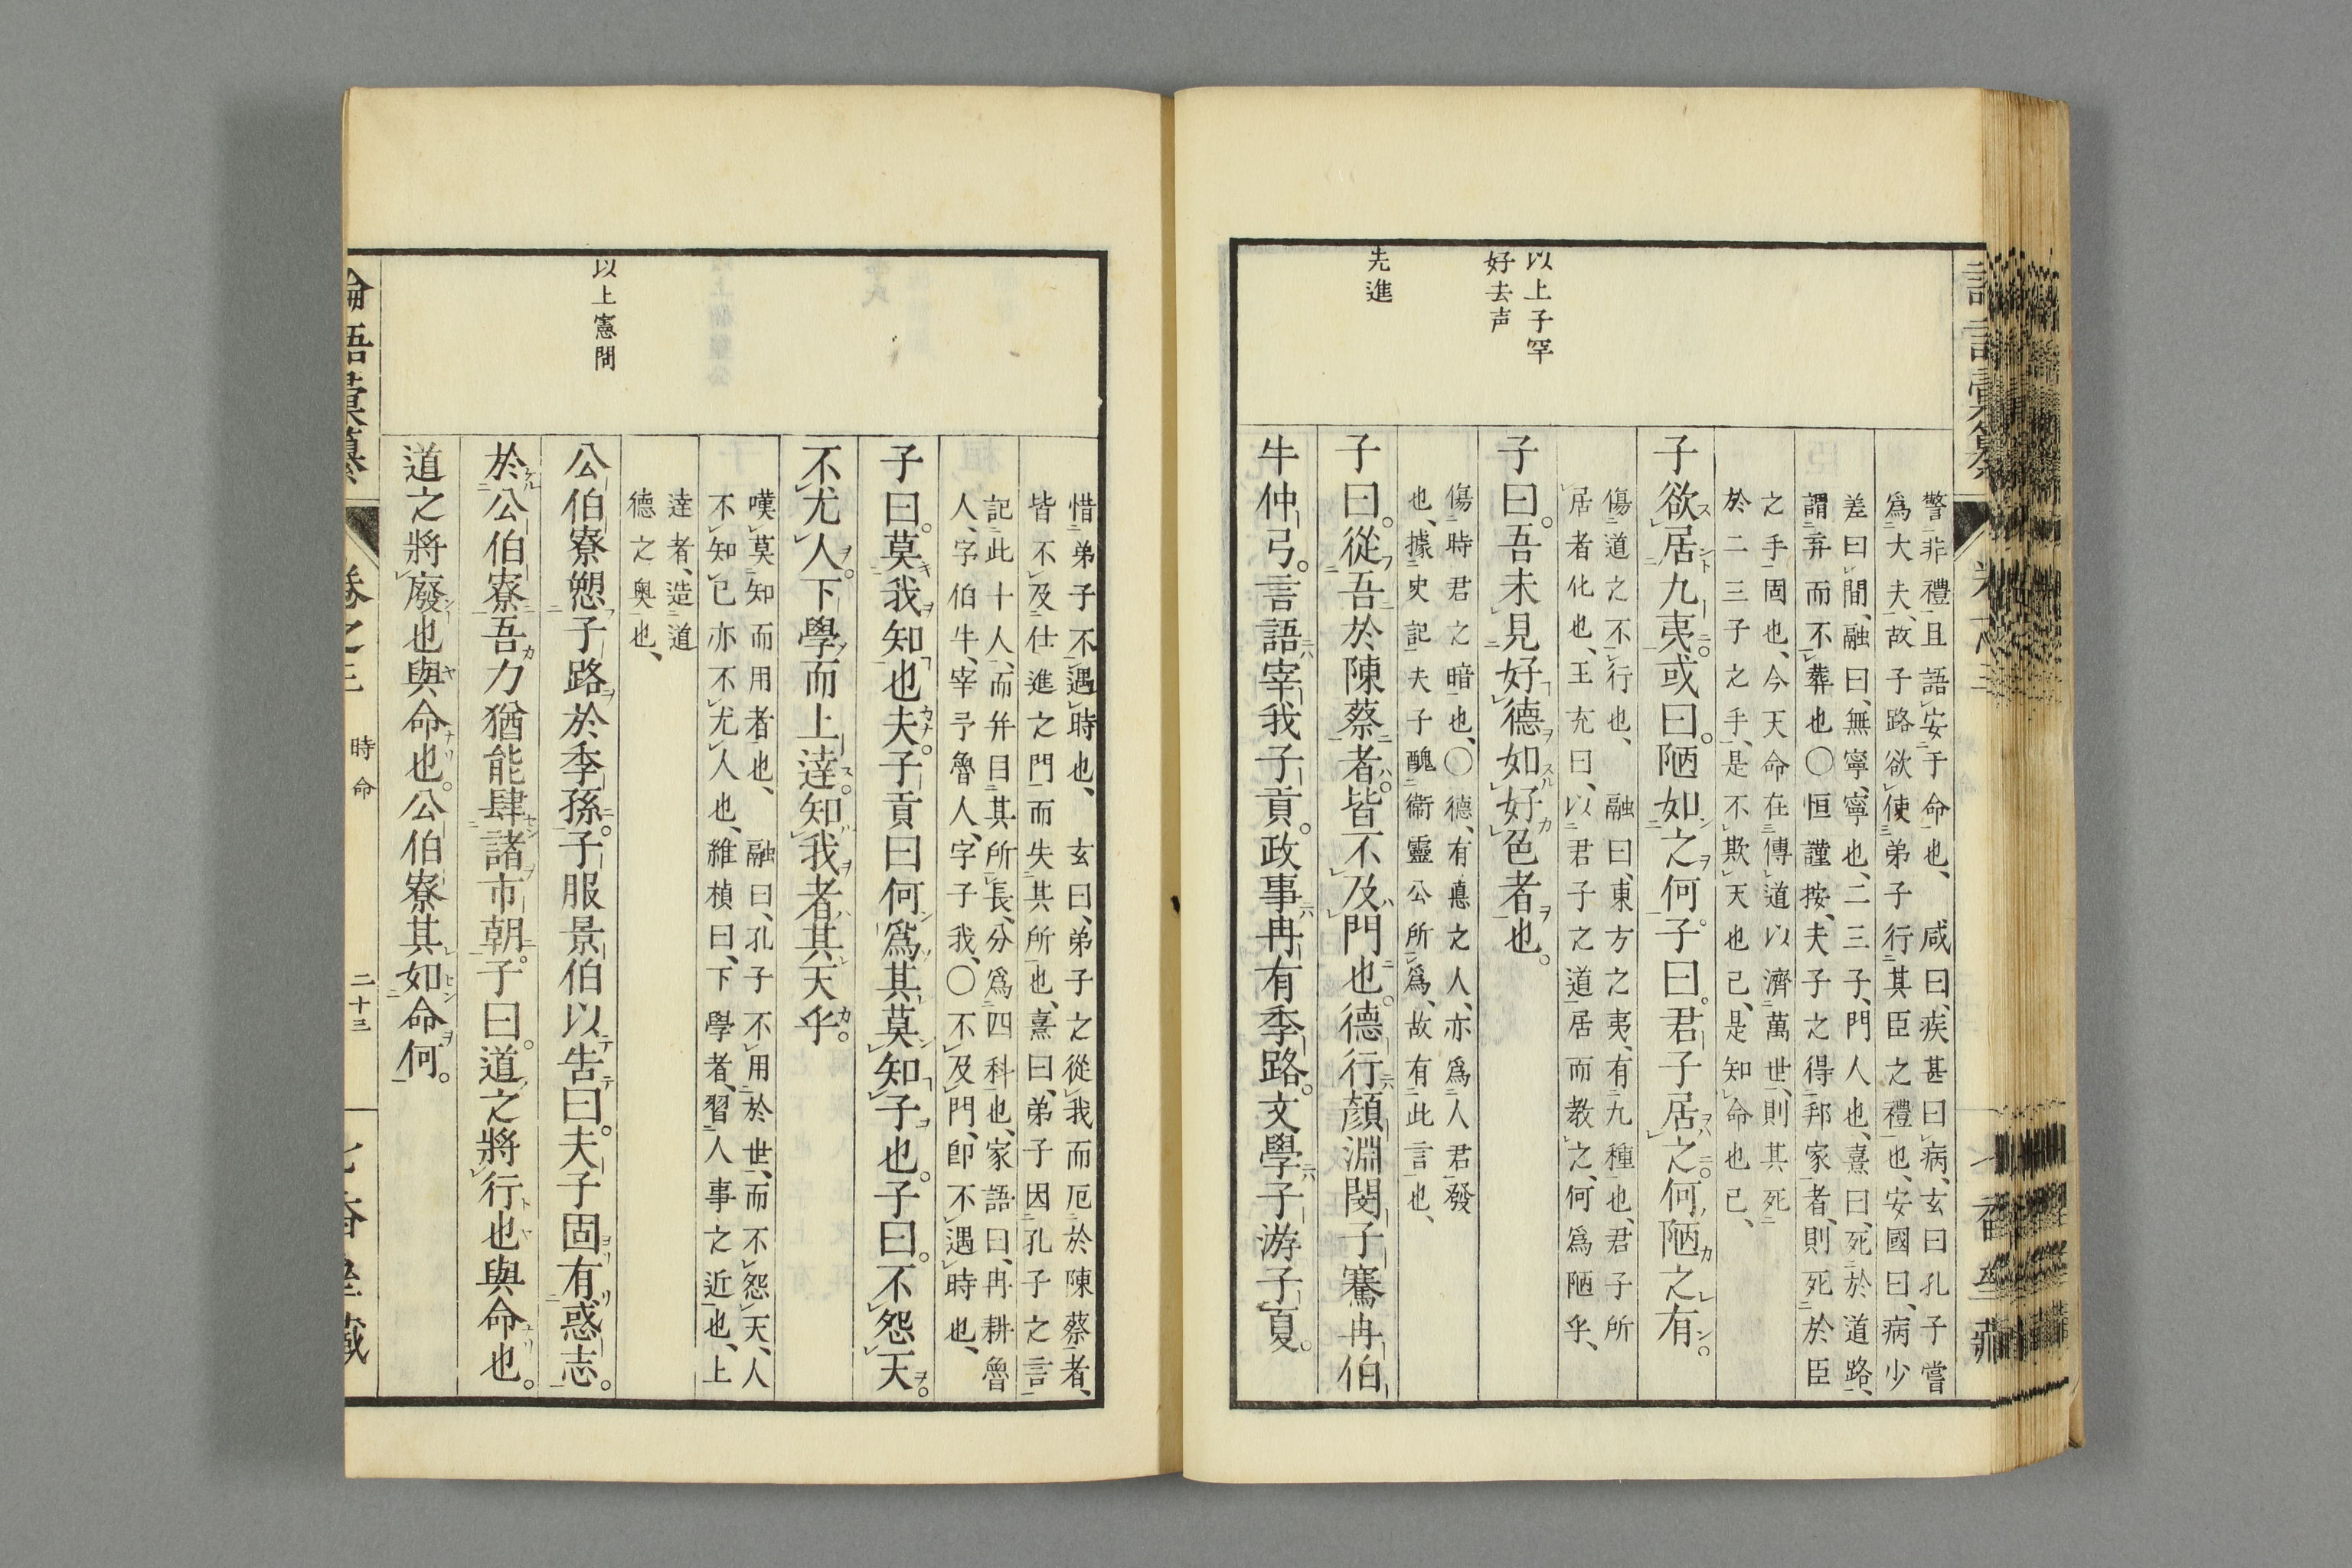 警非禮且語安于命也、　咸曰、疾甚曰病、玄曰孔子嘗
爲大夫、故子路欲使弟子行其臣之禮也、安國曰、病少
差曰間、融曰、無寧、寧也、二三子、門人也、熹曰、死於道路、
謂弃而不葬也〇恒謹按、夫子之得邦家者、則死於臣
之手固也、今天命在傳道以濟萬世、則其死
於二三子之手、是不欺天也已、是知命也已、
子欲居九夷。或曰。陋如之何。子曰。君子居之。何陋之有。
傷道之不行也、　融曰、東方之夷、有九種也、君子所
居者化也、王充曰、以君子之道居而教之、何爲陋乎、
以上子罕
好去声
子曰。吾未見好德如好色者也。
傷時君之暗也、〇德、有悳之人、亦爲人君發
也、據史記、夫子醜衞靈公所爲、故有此言也、
先進
子曰。從吾於陳蔡者。皆不及門也。德行顏淵閔子騫冉伯
牛仲弓。言語宰我子貢。政事冉有季路。文學子游子夏。
惜弟子不遇時也、　玄曰、弟子之從我而厄於陳蔡者、
皆不及仕進之門而失其所也、熹曰、弟子因孔子之言
記此十人、而幷目其所長、分爲四科也、家語曰、冉耕魯
人、字伯牛、宰予魯人、字子我、〇不及門、卽不遇時也、
子曰。莫我知也夫。子貢曰何爲其莫知子也。子曰。不怨天。
不尤人。下學而上達。知我者其天乎。
嘆莫知而用者也、　融曰、孔子不用於世、而不怨天、人
不知己亦不尤人也、維楨曰、下學者、習人事之近也、上
達者、造道
德之奧也、
以上憲問
公伯寮愬子路於季孫。子服景伯以告曰。夫子固有惑志。
於公伯寮吾力猶能肆諸市朝。子曰。道之將行也與命也。
道之將廢也與命也。公伯寮其如命何。
論語彙纂　卷之三　時命　二十三